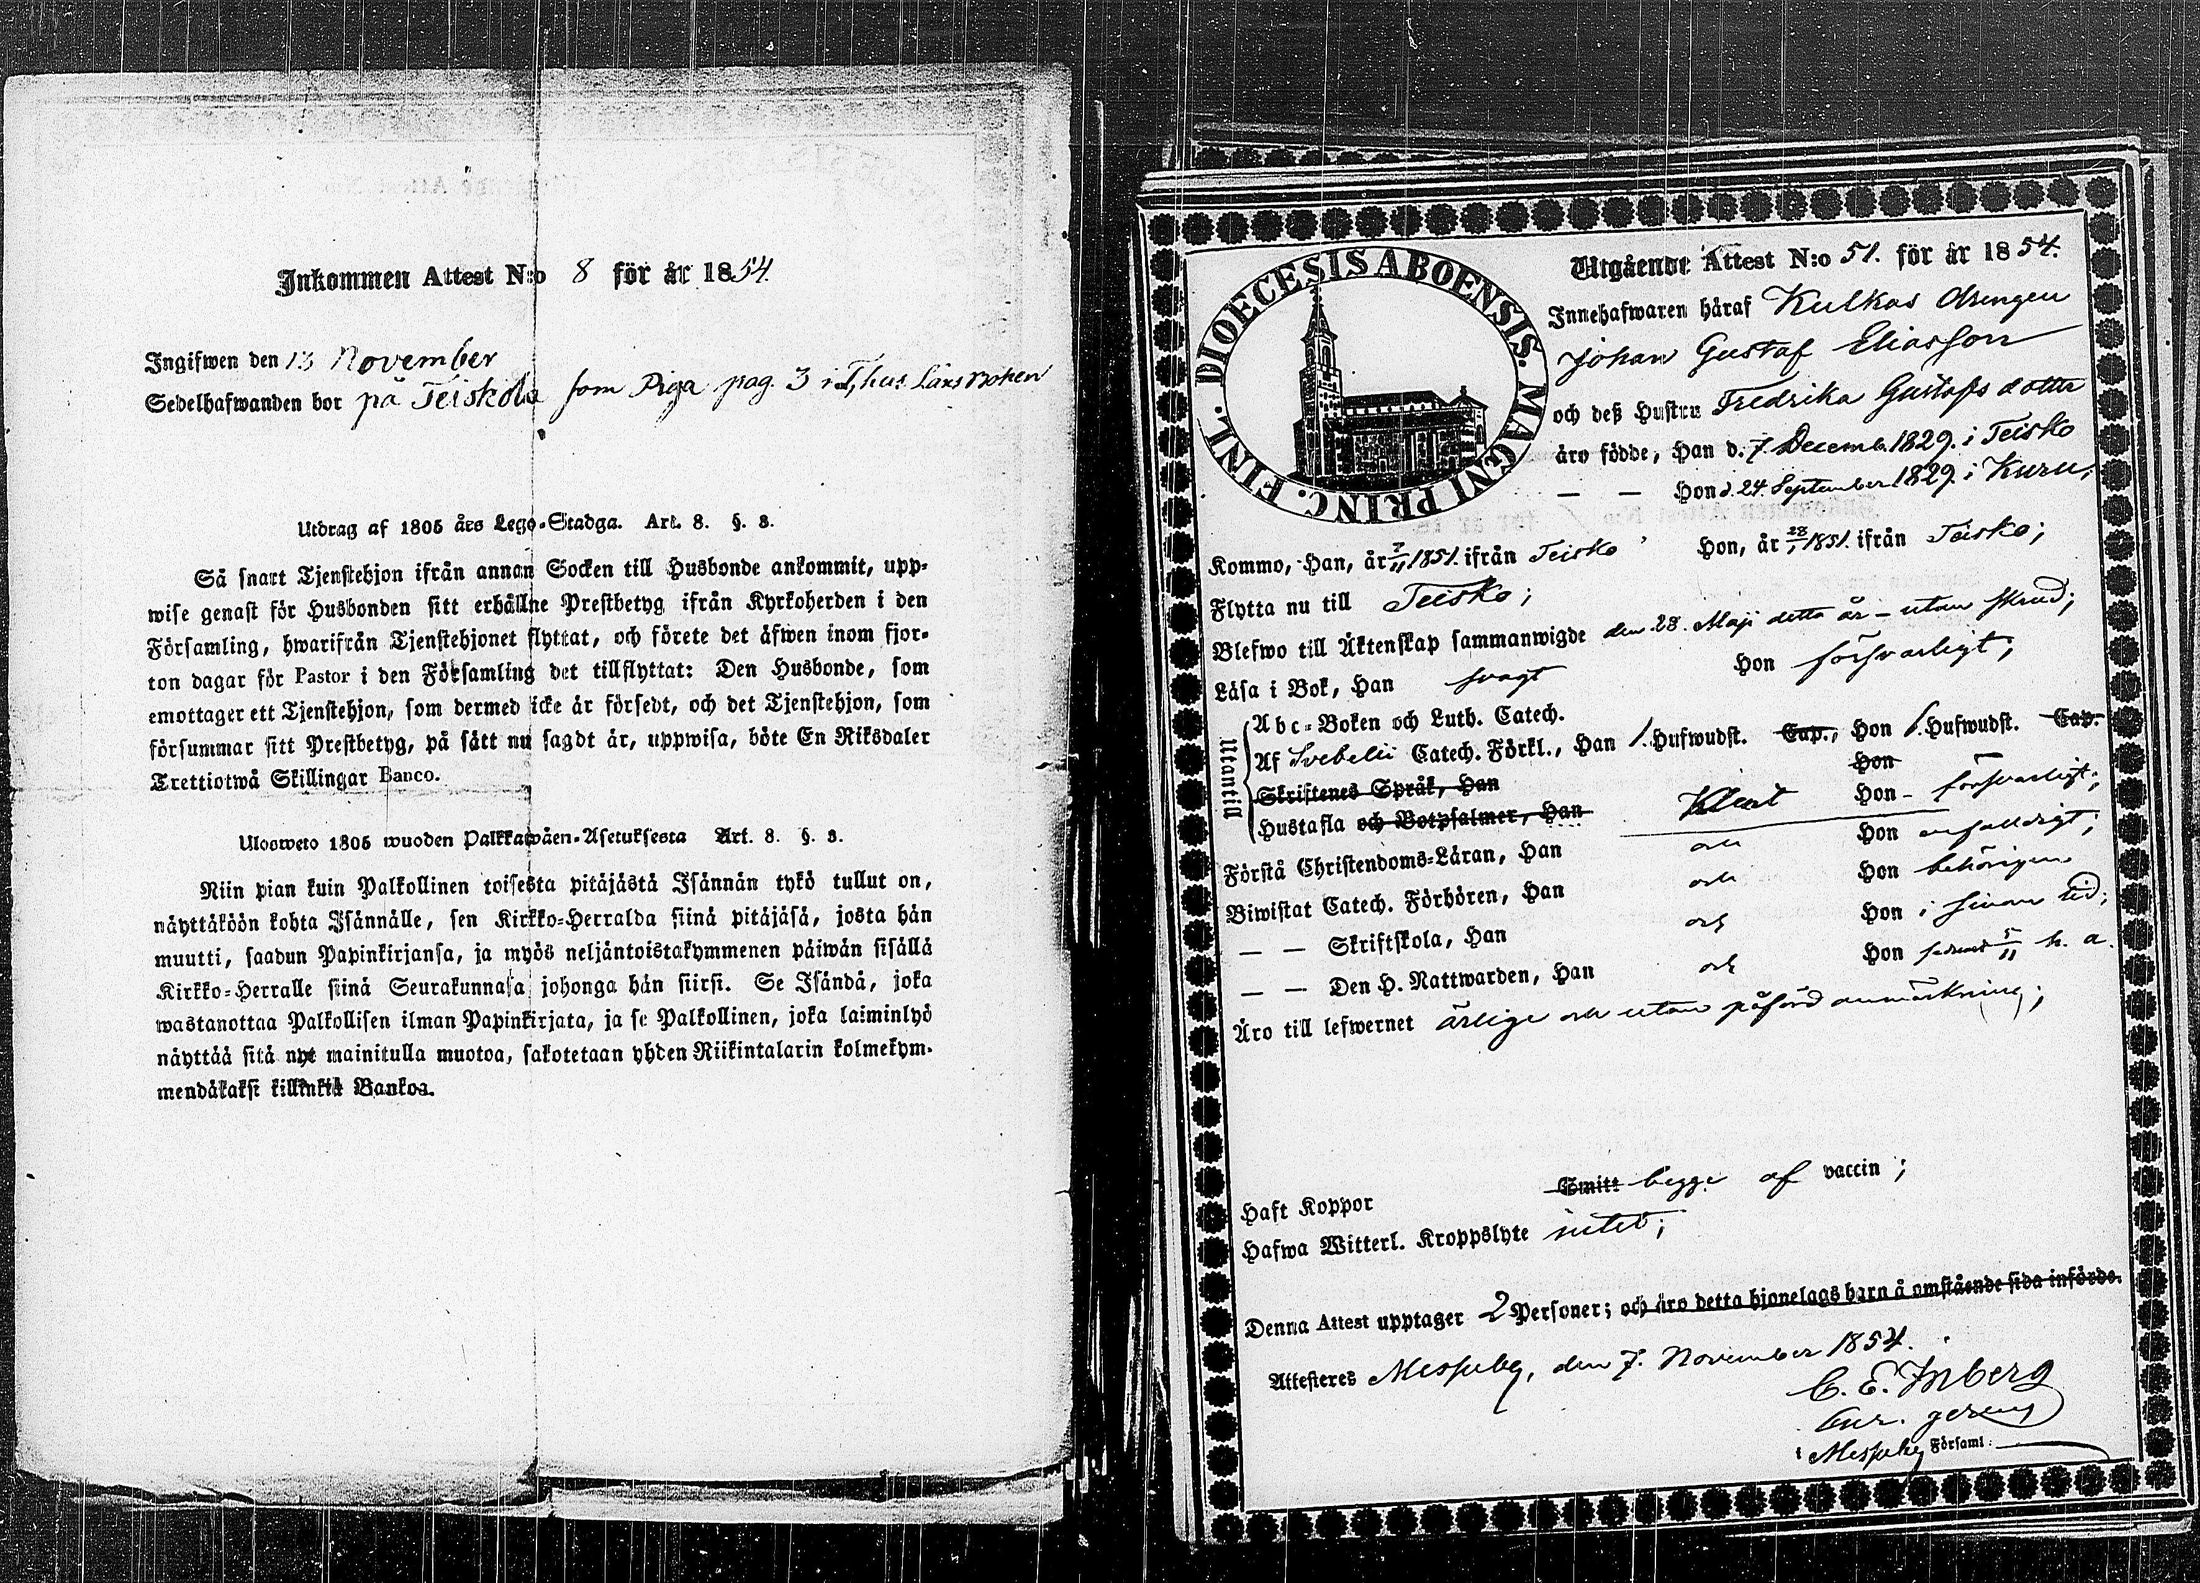 Inkommen Attest N:o 8 för år 1854.
Ingifwen den 13 November
Sedelhafwanden bor på Teiskola som Piga pag. 3 i
Utdrag af 1805 års Lego-Stadga. Art. 8. §. 3.
Så snart Tjenstehjon ifrån annan Socken till Husbonde ankommit, upp-
wise genast för Husbonden sitt erhållne Prestbetyg ifrån Kyrkoherden i den
Församling, hwarifrån Tjenstehjonet flyttat, och förete det äfwen inom fjor-
ton dagar för Pastor i den Församling det tillflyttat: Den Husbonde, som
emottager ett Tjenstehjon, som dermed icke är försedt, och det Tjenstehjon, som
försummar sitt Prestbetyg, på sätt nu sagdt är, uppwisa, böte En Riksdaler
Trettiotwå Skillingar Banco.
Ulosweto 1805 wuoden Palkkawäen-Asetuksesta Art. 8. §. 3.
Niin pian kuin Palkollinen toisesta pitäjästä Isännän tykö tullut on,
näyttäköön kohta Isännälle, sen Kirkko-Herralda siinä pitäjäsä, josta hän
muutti, saadun Papinkirjansa, ja myös neljäntoistakymmenen päiwän sisällä
Kirkko-Herralle siinä Seurakunnasa johonga hän siirsi. Se Isändä, joka
wastanottaa Palkollisen ilman Papinkirjata, ja se Palkollinen, joka laiminlyö
näyttää sitä nyt mainitulla muotoa, sakotetaan yhden Riikintalarin kolmekym-
mendäkaksi killinkiä Bankoa.
DIOECESIS ABOENSIS. MAGNI PRINC. FINL.
Utgående Attest N:o 51. för år 1854.
Innehafwaren häraf Kulkas drengen
Johan Gustaf Eliasson
och deß Hustru Fredrika Gustafsdotter
äro födde, Han d. 7 Decemb. 1829. i Teisko
— — Hon d. 24 September 1829. i Kuru;
Kommo, Han, år 7/11 1851. ifrån Teisko Hon, år 28/1 1851. ifrån Teisko;
Flytta nu till Teisko;
Blefwo till Äktenskap sammanwigde den 28. Maji detta år – utan skrud;
Läsa i Bok, Han svagt Hon försvarligt;
Utantill
Abc-Boken och Luth. Catech.
Af Svebelii Catech. Förkl., Han 1. Hufwudst. Cap., Hon 1. Hufwudst. Cap.
Skriftenes Språk, Han Hon
Hustafla och Botpsalmer, Han Klent Hon – försvarligt;
Förstå Christendoms-Läran, Han och Hon enfaldigt;
Biwistat Catech. Förhören, Han och Hon behörigen
— — Skriftskola, Han och Hon i sinom tid;
— — Den H. Nattwarden, Han och Hon 5/11 h. a.
Äro till lefwernet ärlige och utan påförd anmärkning;
Haft Koppor Smitt begge af vaccin;
Hafwa Witterl. Kroppslyte intet;
Denna Attest upptager 2 Personer; och äro detta hjonelags barn å omstående sida införde.
Attesteres Messuby, den 7. November 1854.
C. E. Inberg
Cur. gerens
i Messuby Församl.